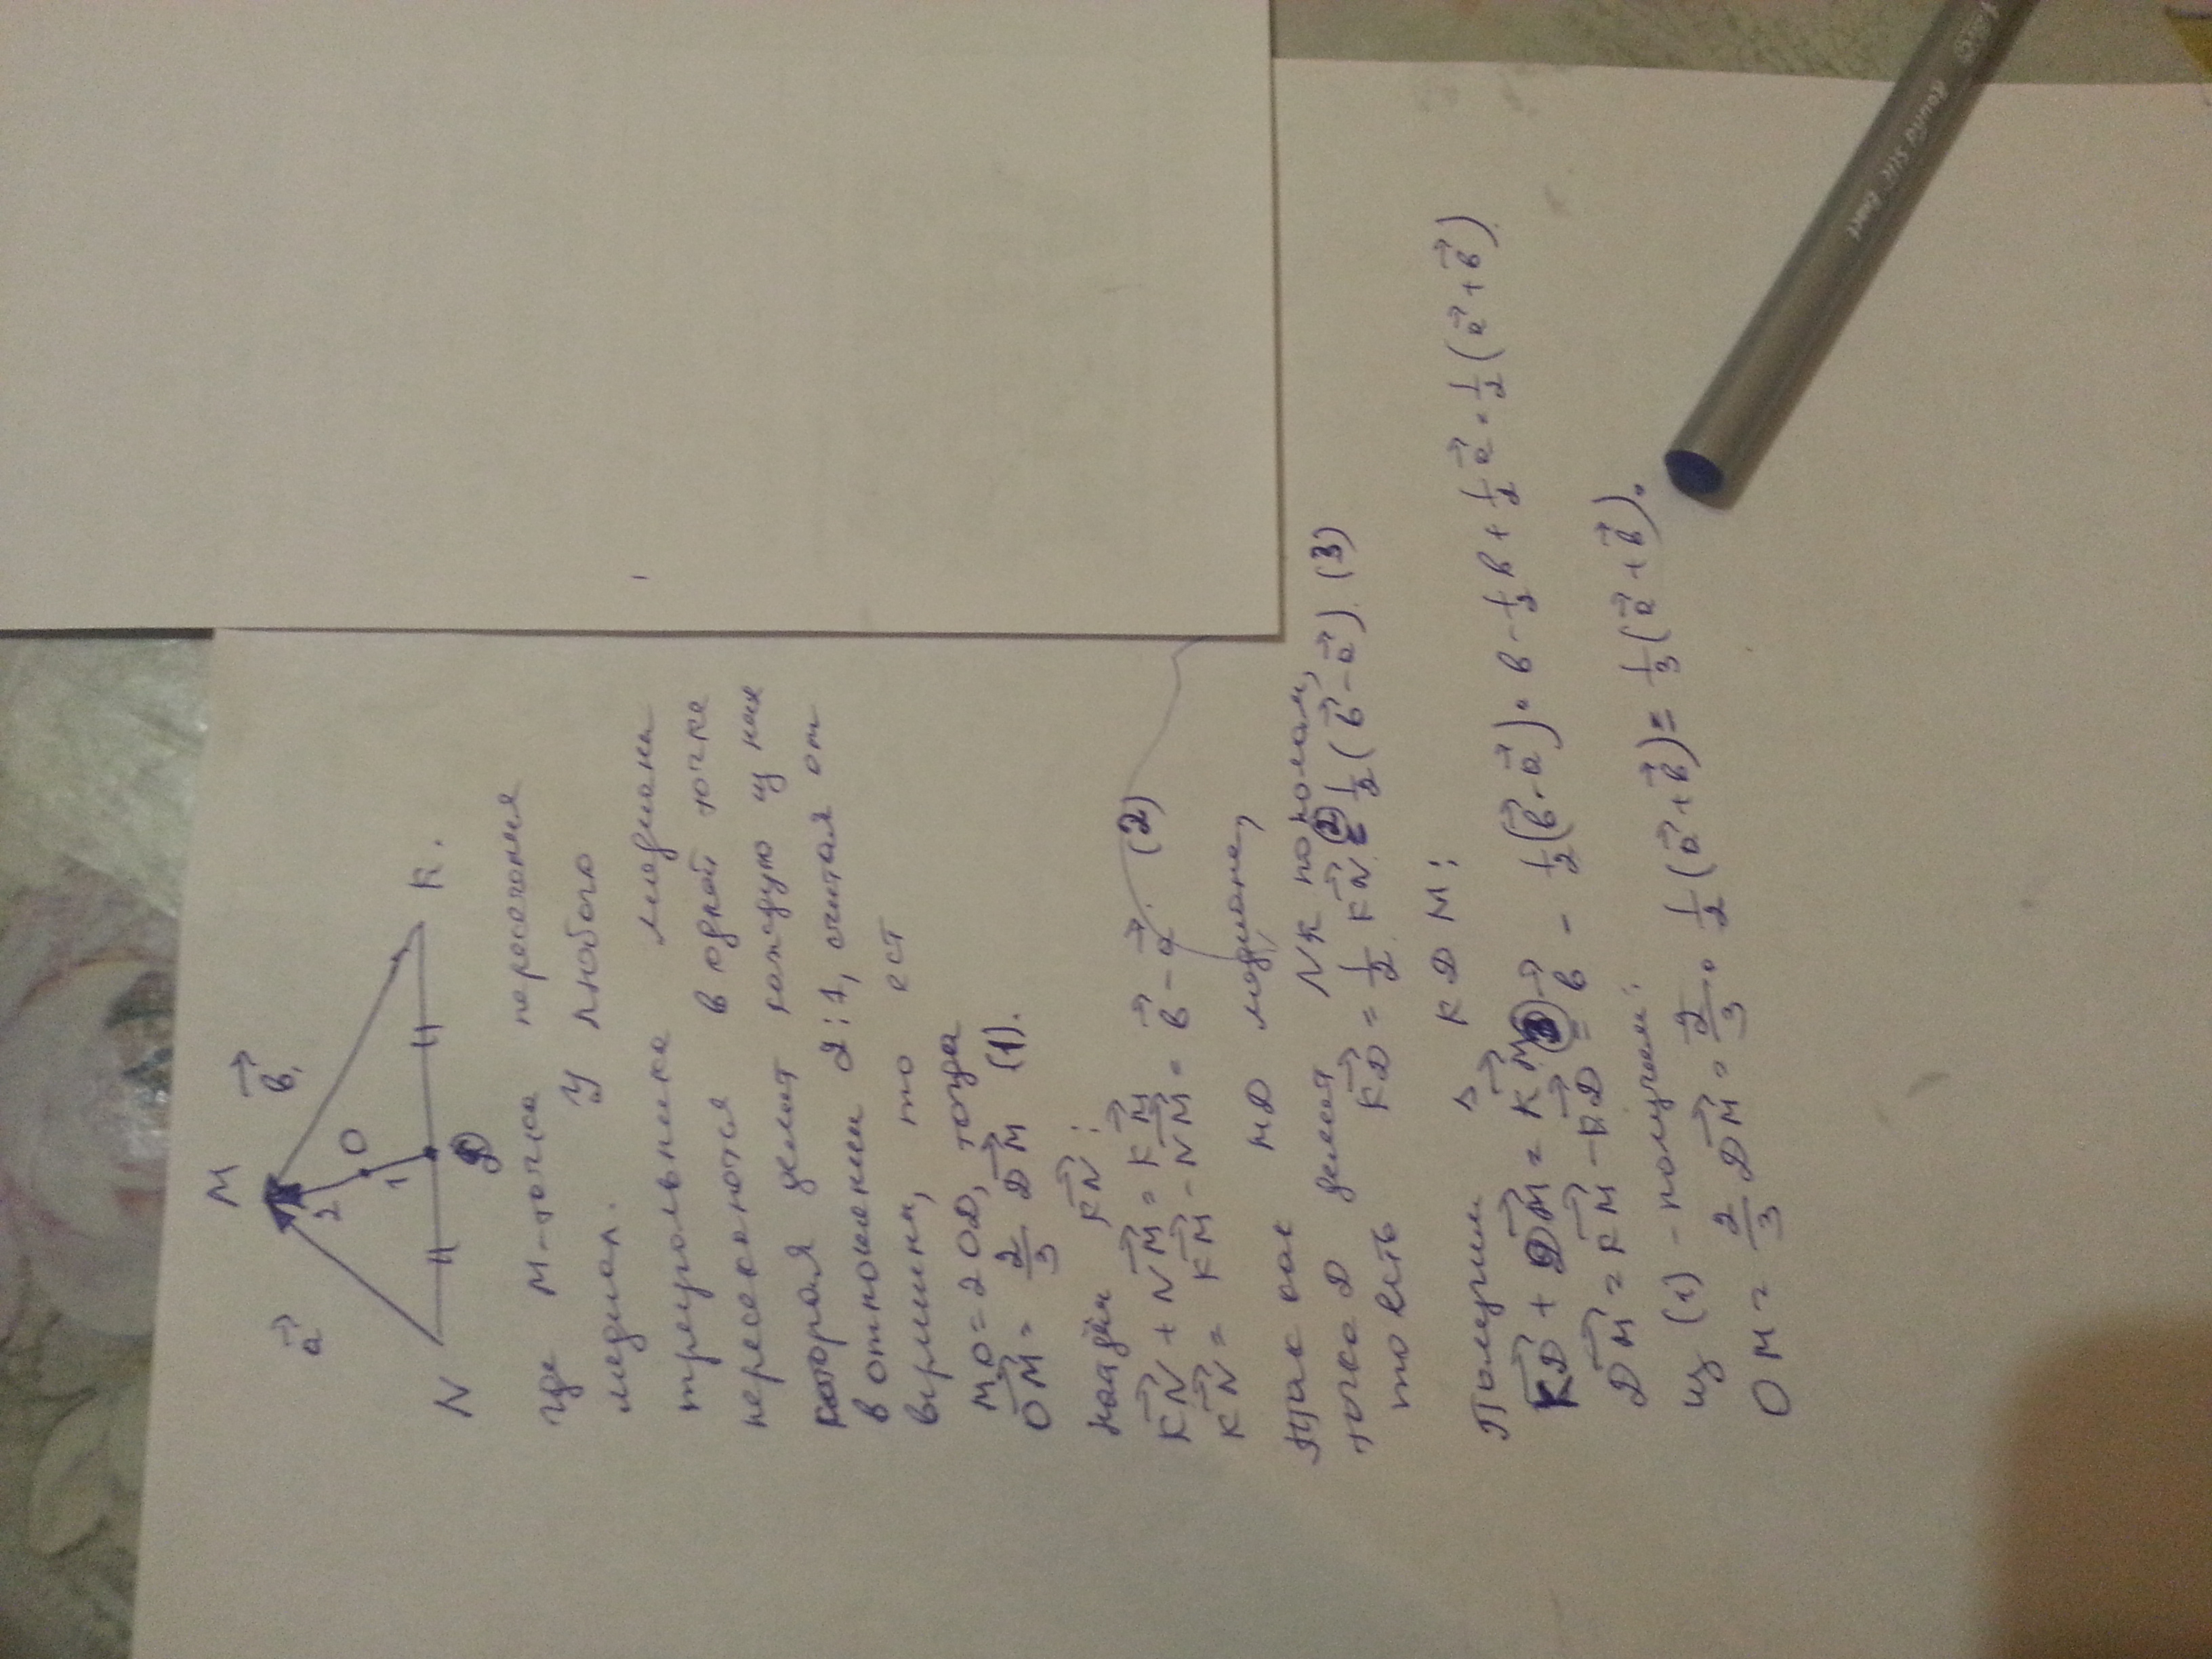 M
a⃗
b⃗
2
O
1
N
D
K.
где M-точка пересечения
медиан. У любого
треугольника медианы
пересекаются в одной точке
которая делит каждую из них
в отношении 2:1, считая от
вершины, то ест
MO=2OD, тогда
O⃗M⃗ = 2/3 D⃗M⃗ (1).
Найдём K⃗N⃗:
K⃗N⃗ + N⃗M⃗ = K⃗M⃗
K⃗N⃗ = K⃗M⃗ - N⃗M⃗ = b⃗ - a⃗. (2)
Так как MD медиана,
точка D делит NK пополам,
то есть K⃗D⃗ = 1/2 K⃗N⃗ (2)= 1/2 (b⃗-a⃗). (3)
Получим Δ KDM:
K⃗D⃗ + D⃗M⃗ = K⃗M⃗
D⃗M⃗ = K⃗M⃗ - K⃗D⃗ (3)= b⃗ - 1/2(b⃗-a⃗) = b - 1/2b + 1/2a⃗ = 1/2(a⃗+b⃗)
из (1) - получаем:
OM = 2/3 D⃗M⃗ = 2/3 · 1/2 (a⃗+b⃗) = 1/3(a⃗+b⃗).
Round Stic Exact